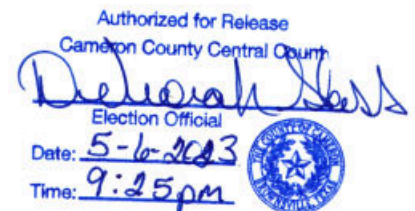 Authorized for Release
Cameron County Central Count
Deborah
Election Official
Date: 5-6-2023
Time: 9:25 pm
THE COUNTY OF CAMERON
BROWNSVILLE, TEXAS